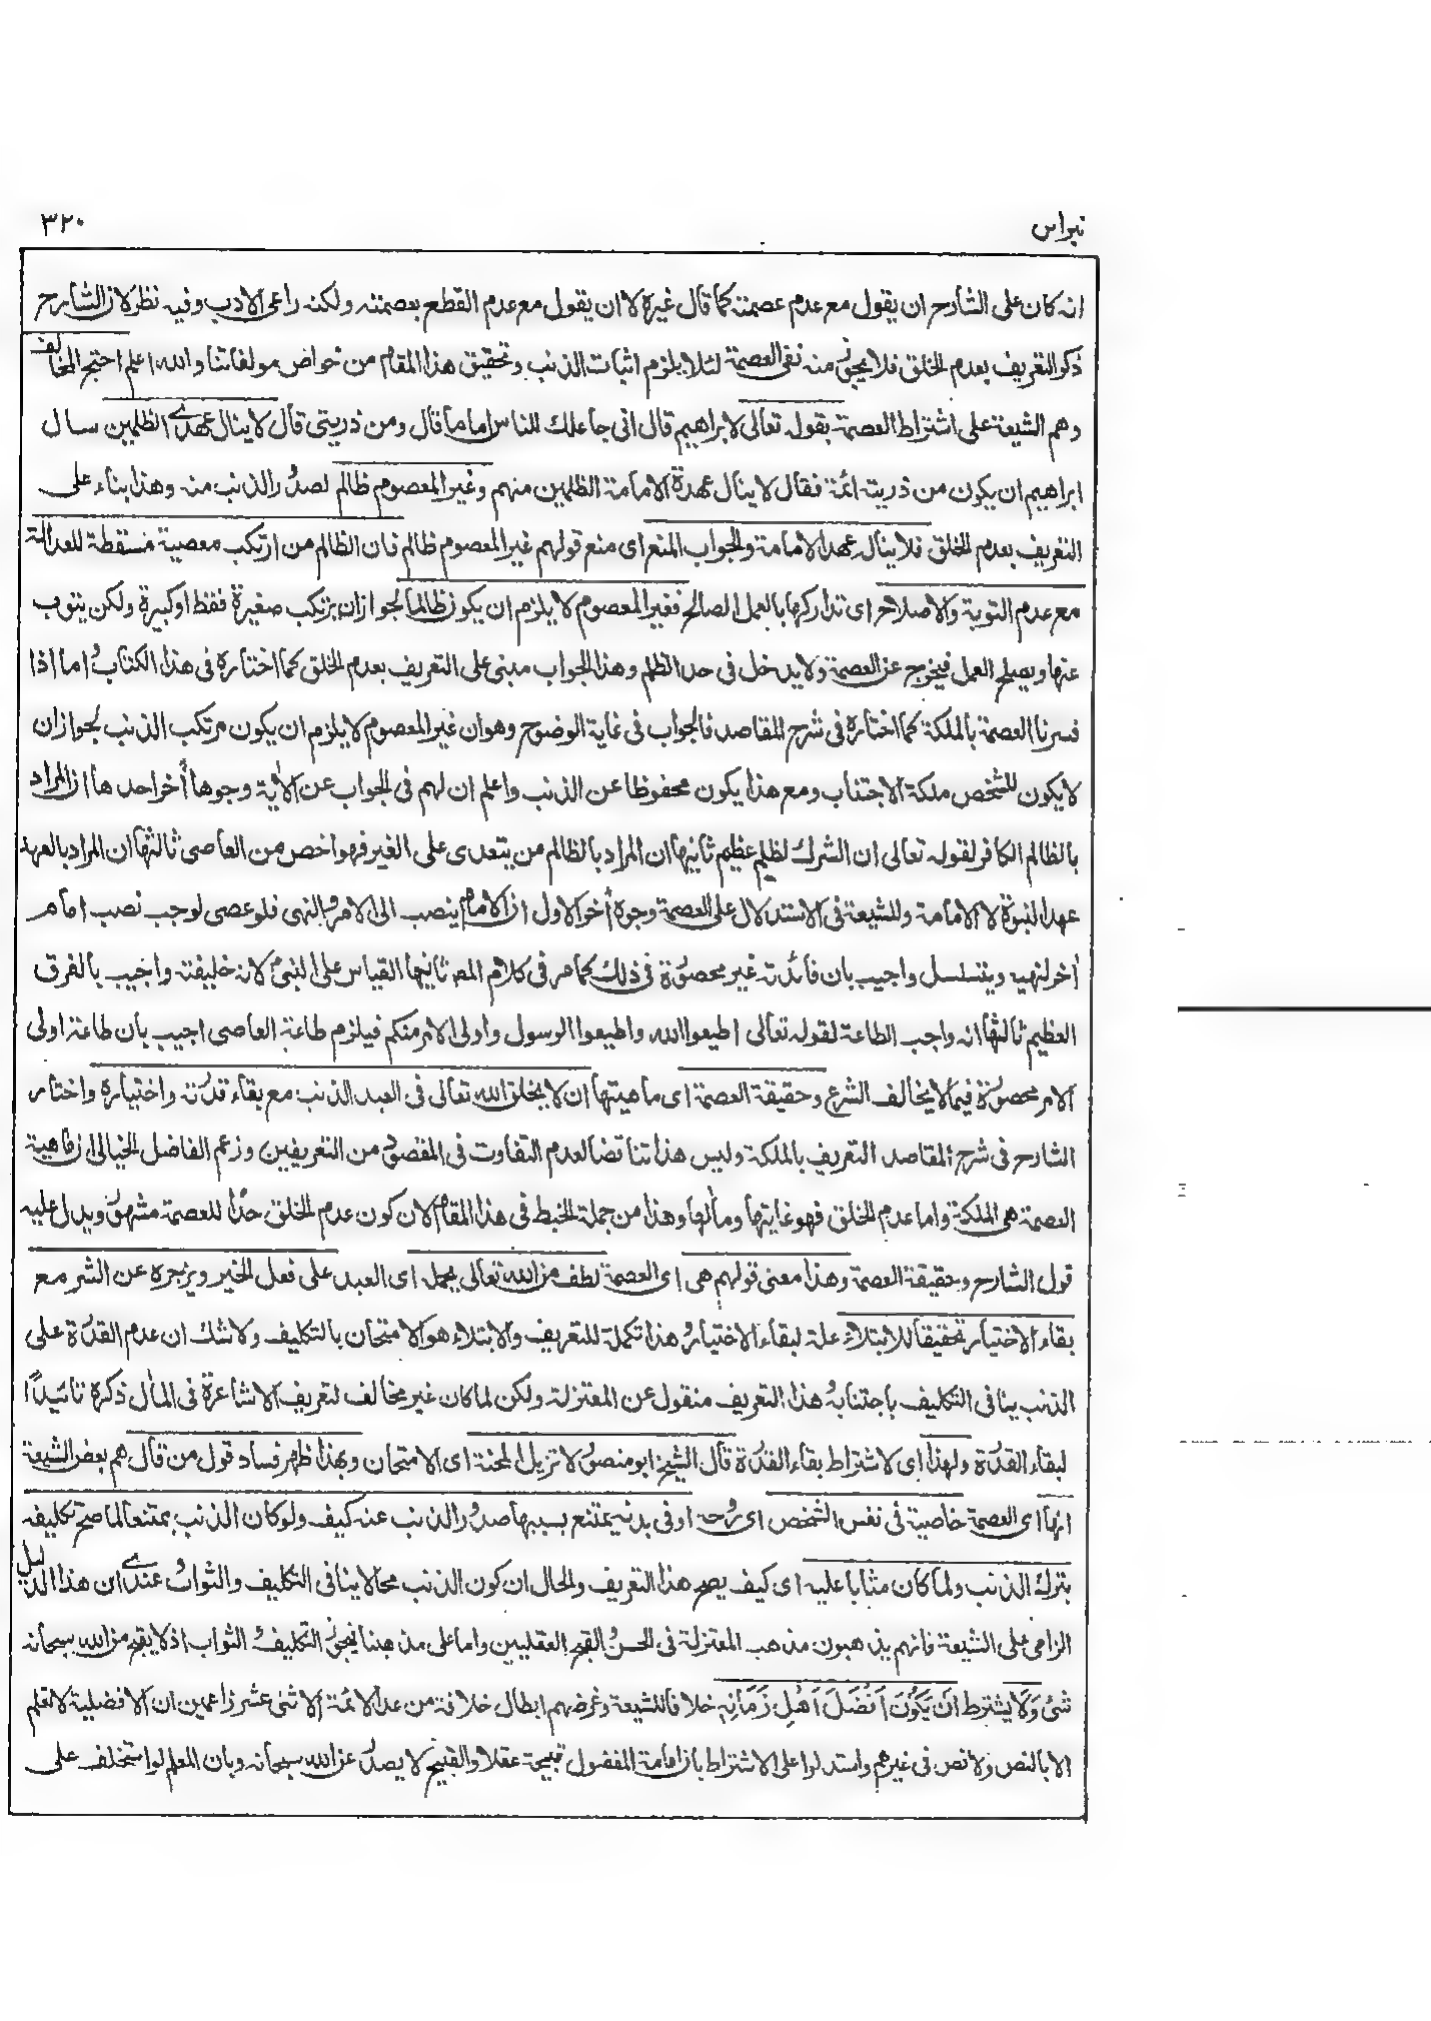 نبراس
٣٢٠
انه كان على الشارح ان يقول مع عدم عصمته كما قال غيره لا ان يقول مع عدم القطع بعصمته ولكنه راعى الادب وفيه نظر لان الشارح
ذكر التعريف بعدم الخلق فلا يجوز منه نفى العصمة لئلا يلزم اثبات الذنب وتحقيق هذا المقام من خواص مولفاتنا والله اعلم احتج المخالف
وهم الشيعة على اشتراط العصمة بقوله تعالى لابراهيم قال انى جاعلك للناس اماما قال ومن ذريتى قال لا ينال عهدى الظلمين سال
ابراهيم ان يكون من ذريته ائمة فقال لا ينال عهدة الامامة الظلمين منهم وغير المعصوم ظالم لصدور الذنب منه وهذا بناء على
التعريف بعدم الخلق فلا يناله عهد الامامة والجواب المنع اى منع قولهم غير المعصوم ظالم فان الظالم من ارتكب معصية مسقطة للعدالة
مع عدم التوبة والاصلاح اى تداركها بالعمل الصالح فغير المعصوم لا يلزم ان يكون ظالما لجواز ان يرتكب صغيرة فقط او كبيرة ولكن يتوب
عنها ويصلح العمل فيخرج عن العصمة ولا يدخل فى حد الظلم وهذا الجواب مبنى على التعريف بعدم الخلق كما اختاره فى هذا الكتاب اما اذا
فسرنا العصمة بالملكة كما اختاره فى شرح المقاصد فالجواب فى غاية الوضوح وهو ان غير المعصوم لا يلزم ان يكون مرتكب الذنب لجواز ان
لا يكون للشخص ملكة الاجتناب ومع هذا يكون محفوظا عن الذنب واعلم ان لهم فى الجواب عن الآية وجوها أخر احدها ان المراد
بالظالم الكافر لقوله تعالى ان الشرك لظلم عظيم ثانيها ان المراد بالظالم من يتعدى على الغير فهو اخص من العاصى ثالثها ان المراد بالعهد
عهد النبوة لا الامامة وللشيعة فى الاستدلال على العصمة وجوه أخر الاول ان الامام ينصب الى الامر والنهى فلو عصى لوجب نصب امام
أخر لنهيه ويتسلسل واجيب بان فائدته غير محصورة فى ذلك كما مر فى كلام المص ثانيها القياس على النبى لانه خليفته واجيب بالفرق
العظيم ثالثها انه واجب الطاعة لقوله تعالى اطيعوا الله واطيعوا الرسول واولى الامر منكم فيلزم طاعة العاصى اجيب بان طاعة اولى
الامر محصورة فيما لا يخالف الشرع وحقيقة العصمة اى ماهيتها ان لا يخلق الله تعالى فى العبد الذنب مع بقاء قدرته واختياره واختار
الشارح فى شرح المقاصد التعريف بالملكة وليس هذا تناقضا لعدم التفاوت فى المقصود من التعريفين وزعم الفاضل الخيالى ان ماهية
العصمة هى الملكة واما عدم الخلق فهو غايتها ومآلها وهذا من جملة الخبط فى هذا المقام لان كون عدم الخلق حدًّا للعصمة مشهور ويدل عليه
قول الشارح وحقيقة العصمة وهذا معنى قولهم هى اى العصمة لطف من الله تعالى يحمل اى العبد على فعل الخير ويزجره عن الشر مع
بقاء الاختيار تحقيقا للابتلاء علة لبقاء الاختيار وهذا تكملة للتعريف والابتلاء هو الامتحان بالتكليف ولا شك ان عدم القدرة على
الذنب ينافى التكليف باجتنابه وهذا التعريف منقول عن المعتزلة ولكن لما كان غير مخالف لتعريف الاشاعرة فى المأل ذكره تائيدًا
لبقاء القدرة ولهذا اى لاشتراط بقاء القدرة قال الشيخ ابو منصور لا تزيل المحنة اى الامتحان وبهذا ظهر فساد قول من قال هم بعض الشيعة
انها اى العصمة خاصية فى نفس الشخص اى روحه او فى بدنه يمتنع بسببها صدور الذنب عنه كيف ولو كان الذنب ممتنعا لما صح تكليفه
بترك الذنب ولما كان مثابا عليه اى كيف يصح هذا التعريف والحال ان كون الذنب محالا ينافى التكليف والثواب عندى ان هذا الدليل
الزامى على الشيعة فانهم يذهبون مذهب المعتزلة فى الحسن والقبح العقليين واما على مذهبنا فيجوز التكليف والثواب اذ لا يقبح من الله سبحانه
شئ وَلَا يشترط اَن يَكُوْنَ اَفْضَلَ اَهْلِ زَمَانِهِ خلافا للشيعة وغرضهم ابطال خلافة من عدا الائمة الاثنى عشر زاعمين ان الافضلية لا تعلم
الا بالنص ولا نص فى غيرهم واستدلوا على الاشتراط بان امامة المفضول قبيحة عقلا والقبيح لا يصدر عن الله سبحانه وبان المعلم لو استخلف على